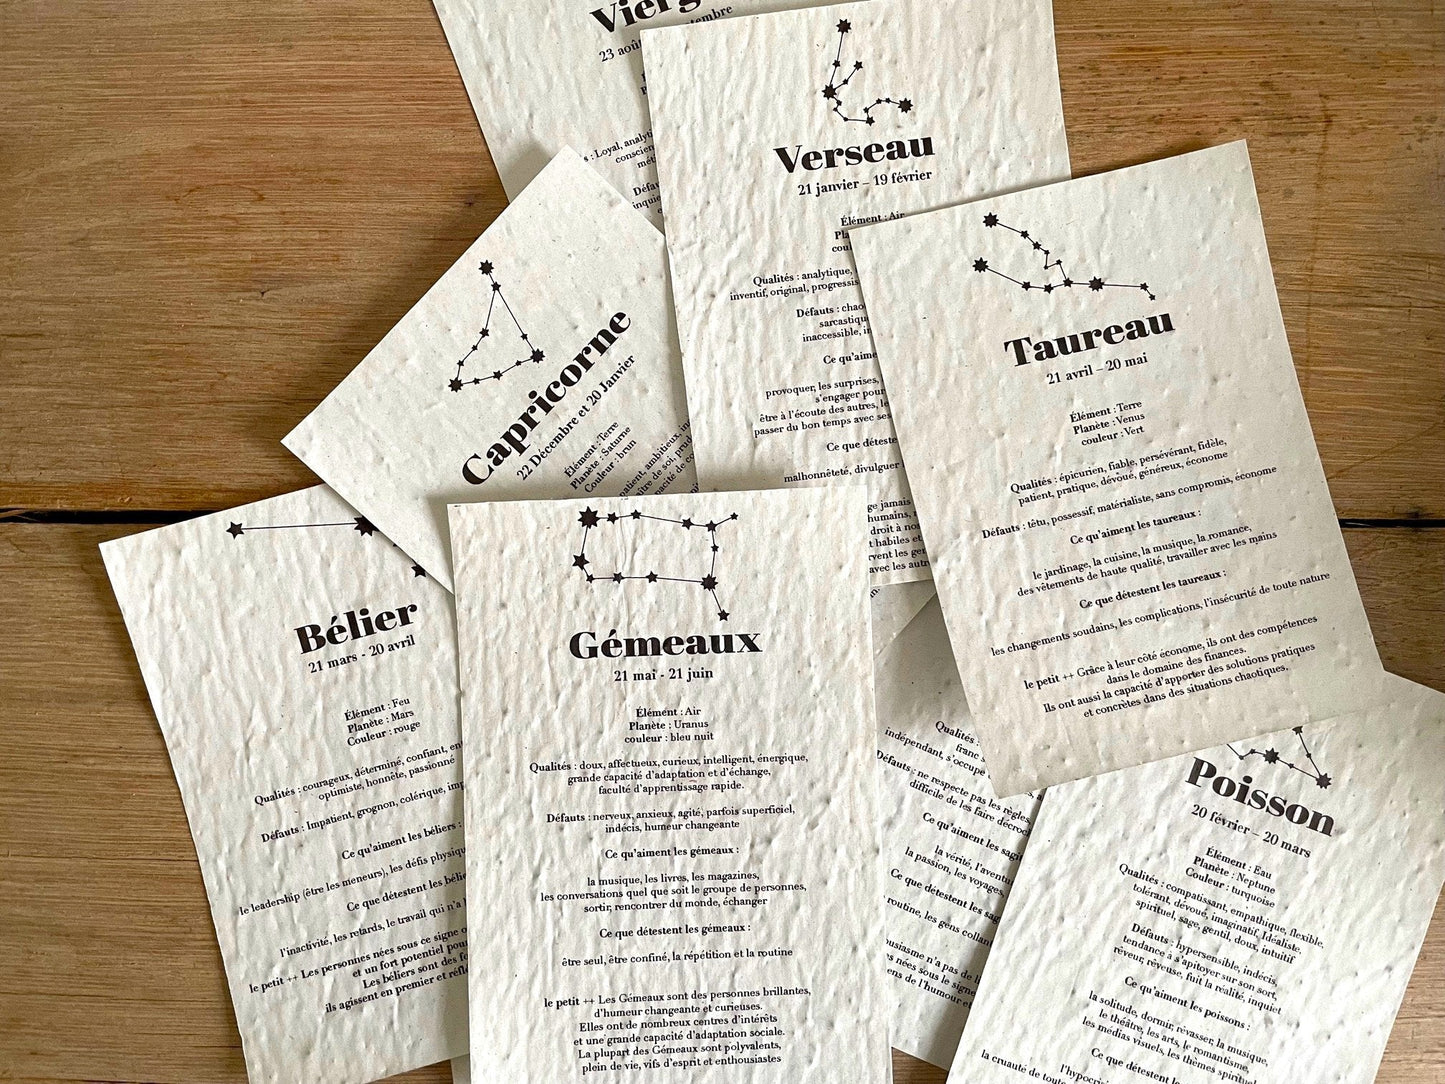 23 août
septembre
: Loyal,
Défauts
Verseau
21 janvier – 19 février
Élément : Air
Qualités : analytique,
inventif, original,
Défauts :
sarcastique
inaccessible,
Ce qu'aiment
provoquer, les surprises,
s'engager pour
être à l'écoute des autres,
passer du bon temps avec ses
Ce que détestent
malhonnêteté, divulguer
jamais
humains,
droit à
habiles et
avec les
Taureau
21 avril – 20 mai
Élément : Terre
Planète : Venus
couleur : Vert
Qualités : épicurien, fiable, persévérant, fidèle,
patient, pratique, dévoué, généreux, économe
Défauts : têtu, possessif, matérialiste, sans compromis, économe
Ce qu'aiment les taureaux :
le jardinage, la cuisine, la musique, la romance,
des vêtements de haute qualité, travailler avec les mains
Ce que détestent les taureaux :
les changements soudains, les complications, l'insécurité de toute nature
le petit ++ Grâce à leur côté économe, ils ont des compétences
dans le domaine des finances.
Ils ont aussi la capacité d'apporter des solutions pratiques
et concrètes dans des situations chaotiques.
Capricorne
22 Décembre et 20 Janvier
Élément : Terre
Planète : Saturne
Couleur : brun
ambitieux,
de soi,
Bélier
21 mars - 20 avril
Élément : Feu
Planète : Mars
Couleur : rouge
Qualités : courageux, déterminé, confiant,
optimiste, honnête, passionné
Défauts : Impatient, grognon, colérique,
Ce qu'aiment les béliers :
le leadership (être les meneurs), les défis
Ce que détestent les
l'inactivité, les retards, le travail qui n'a
le petit ++ Les personnes nées sous ce signe
et un fort potentiel pour
Les béliers sont des
ils agissent en premier et
Gémeaux
21 mai - 21 juin
Élément : Air
Planète : Uranus
couleur : bleu nuit
Qualités : doux, affectueux, curieux, intelligent, énergique,
grande capacité d'adaptation et d'échange,
faculté d'apprentissage rapide.
Défauts : nerveux, anxieux, agité, parfois superficiel,
indécis, humeur changeante
Ce qu'aiment les gémeaux :
la musique, les livres, les magazines,
les conversations quel que soit le groupe de personnes,
sortir, rencontrer du monde, échanger
Ce que détestent les gémeaux :
être seul, être confiné, la répétition et la routine
le petit ++ Les Gémeaux sont des personnes brillantes,
d'humeur changeante et curieuses.
Elles ont de nombreux centres d'intérêts
et une grande capacité d'adaptation sociale.
La plupart des Gémeaux sont polyvalents,
plein de vie, vifs d'esprit et enthousiastes
Qualités :
franc
indépendant, s'occupe
Défauts : ne respecte pas les règles,
difficile de les faire
Ce qu'aiment les
la vérité,
la passion, les voyages,
Ce que détestent les
routine, les gens
n'a pas de
nées sous le signe
de l'humour et
Poisson
20 février – 20 mars
Élément : Eau
Planète : Neptune
Couleur : turquoise
Qualités : compatissant, empathique, flexible,
tolérant, dévoué, imaginatif, Idéaliste,
spirituel, sage, gentil, doux, intuitif
Défauts : hypersensible, indécis,
tendance à s'apitoyer sur son sort,
rêveur, rêveuse, fuit la réalité, inquiet
Ce qu'aiment les poissons :
la solitude, dormir, rêvasser, la musique,
le théâtre, les arts, le romantisme,
les médias visuels, les thèmes
Ce que détestent
la cruauté de